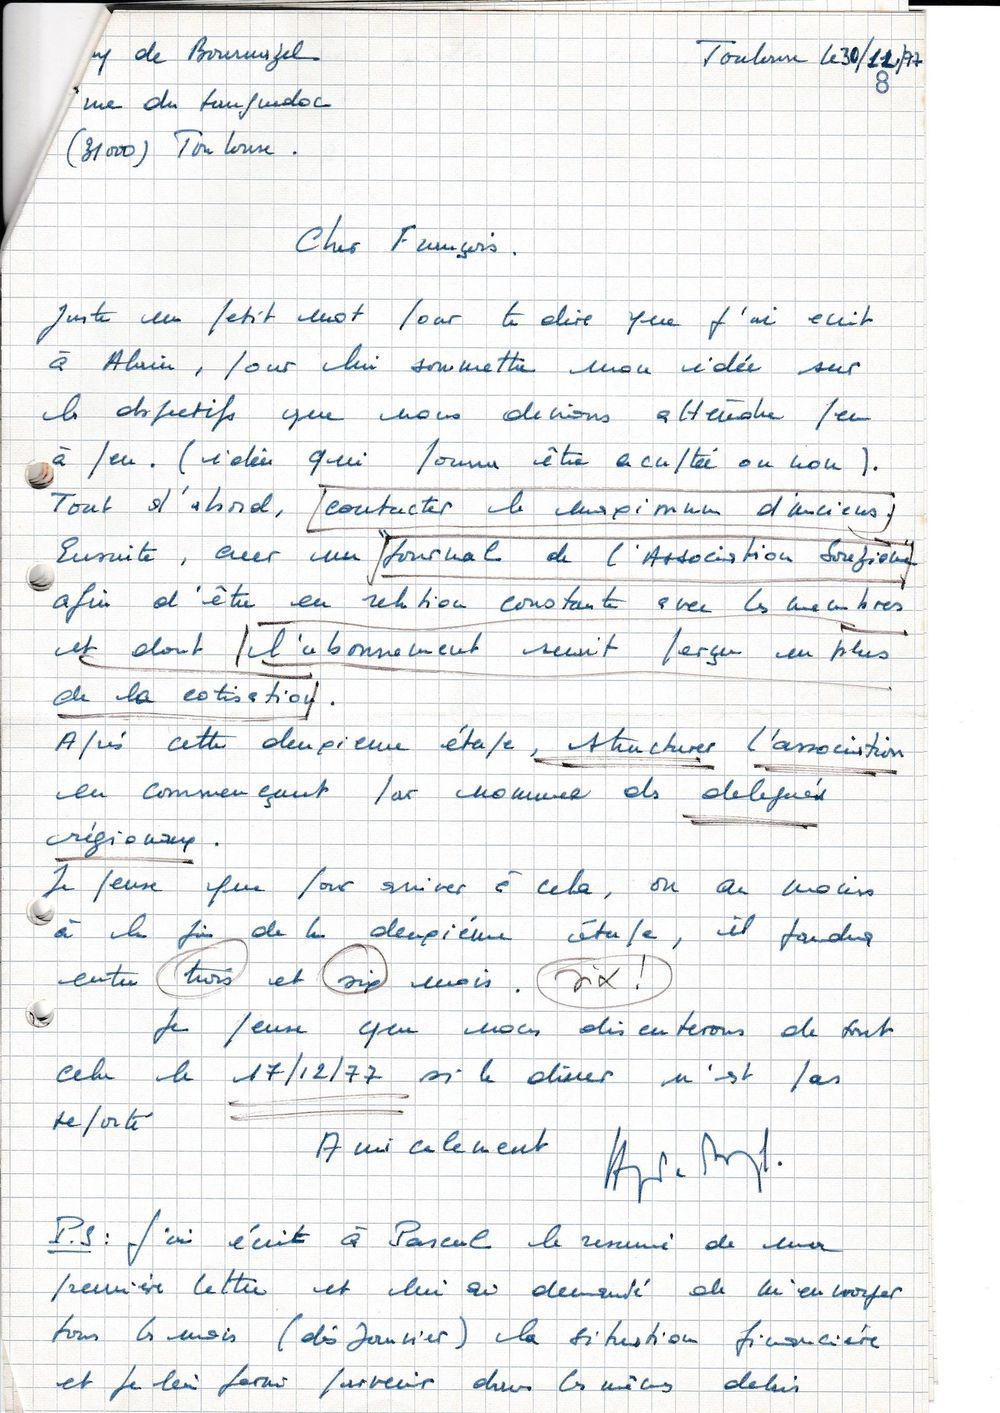 uy de Bournazel Toulouse le 30/11/77
8
du Languedoc
(31000) Toulouse.
Cher François.
Juste un petit mot pour te dire que j'ai ecrit
à Alain, pour lui soumettre mon idée sur
les objectifs que nous devions atteindre peu
à peu. (idée qui pourra être acceptée ou non).
Tout d'abord, contacter le maximum d'anciens.
Ensuite, creer un "Journal de l'Association Sorézienne
afin d'être en relation constante avec les membres
et dont l'abonnement serait perçu en plus
de la cotisation.
Après cette deuxieme étape, structurer l'association
en commençant par nommer des delegués
régionaux.
Je pense que pour arriver à cela, ou au moins
à la fin de la deuxiéme étape, il faudra
entre trois et six mois. six!
Je pense que nous discuterons de tout
cela le 17/12/77 si le diner n'est pas
reporté
Amicalement
P.S: J'ai écrit à Pascal le resumé de mon
première lettre et lui ai demandé de m'envoyer
tous les mois (dès Janvier) la situation financière
et je lui ferai parvenir dans les mêmes delais